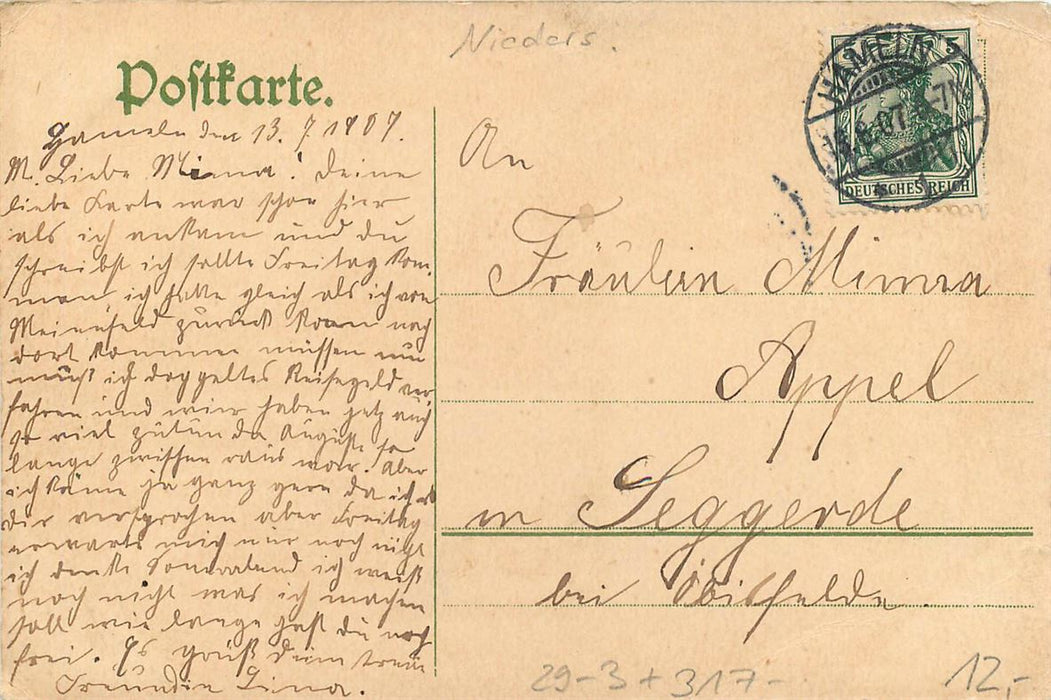 Nieders.
Postkarte.
HAMELN
DEUTSCHES REICH
5
Hameln den 13. 1907.
M. Liebe Minna! Deine
liebe Karte war schon hier
als ich ankam und du
schreibst ich sollte Freitag kom-
men ich hätte gleich als ich von
zurück kam nach
dort kommen müssen nun
muß ich doppeltes Reisegeld ver
fahren und wir haben jetz auch
so viel zutun da Auguste so
lange zwischen raus war. Aber
ich käme ja ganz gern da ich es
dir versprochen aber Freitag
erwarte mich nur noch nicht
ich denke Sonnabend ich weiß
noch nicht was ich machen
soll wie lange hast du noch
frei. Es grüßt dein treue
Freundin Lina.
An
Fräulein Minna
Appel
in Seggerde
bei Öbisfelde
29-3+317-
12.-